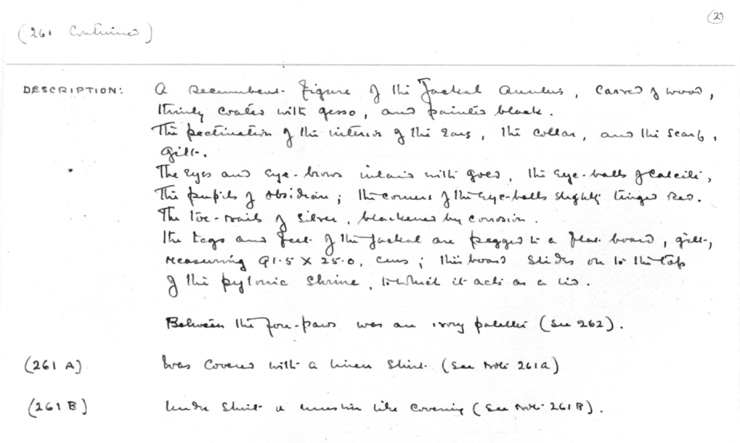 (2)
(261 Continued)
DESCRIPTION: A recumbent figure of the Jackal Anubis, carved of wood,
thinly coated with gesso, and painted black.
The pectination of the interior of the ears, the collar, and the scarf,
gilt.
The eyes and eye-brows inlaid with gold, the eye-balls of calcite,
the pupils of obsidian; the corners of the eye-balls slightly tinged red.
The toe-nails of silver, blackened by corrosion.
The legs and feet of the Jackal are pegged to a flat board, gilt,
measuring 91.5 X 25.0. cms; this board slides on to the top
of the pylonic shrine, to which it acts as a lid.
Between the fore-paws was an ivory palette (see 262).
(261 A) Was covered with a linen shirt. (See Note 261A)
(261 B) Under shirt a muslin like covering (See Note 261B).